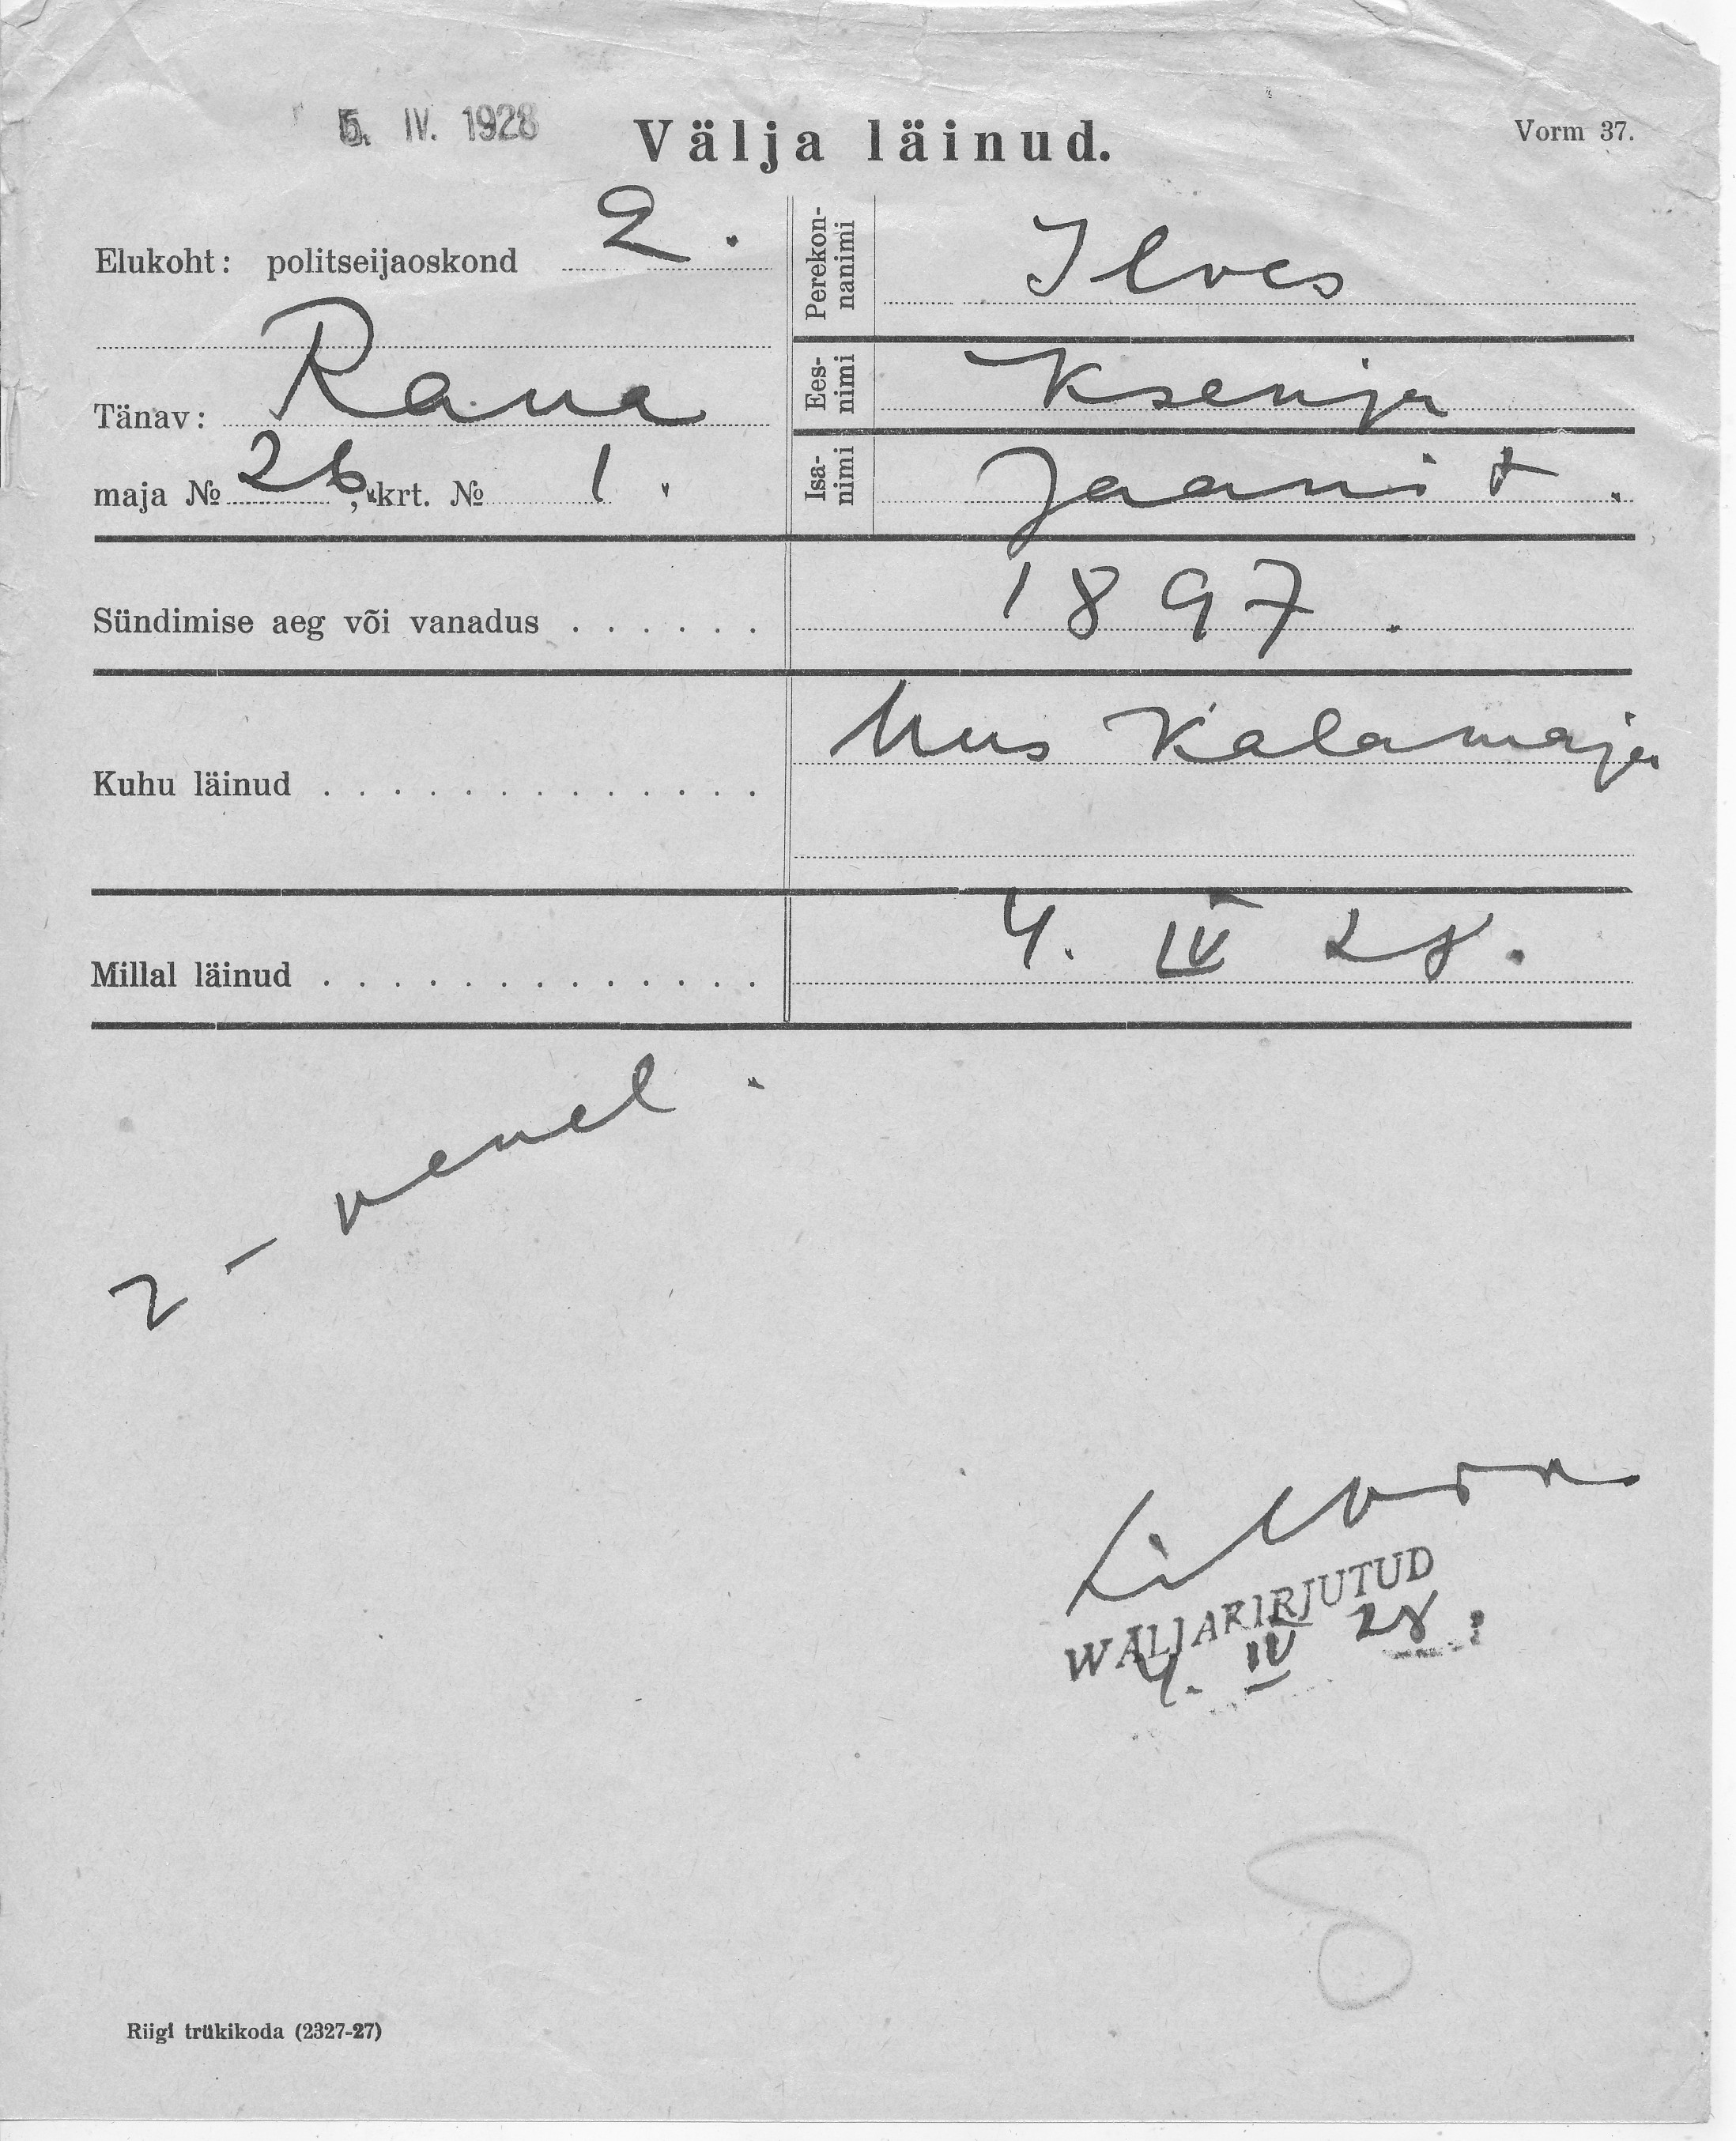 5. IV. 1928
Välja läinud.
Vorm 37.
Elukoht: politseijaoskond 2.
Tänav: Rana
maja № 26, krt. № 1.
Perekon-
nanimi
Ilves
Ees-
nimi
Ksenja
Isa-
nimi
Jaani t.
Sündimise aeg või vanadus . . . . . . 1897.
Kuhu läinud . . . . . . . . . . . . . Uus Kalamaja
Millal läinud . . . . . . . . . . . . . 4. IV 28.
2 – venel.
WÄLJAKIRJUTUD
4. IV 28.
Riigi trükikoda (2327-27)